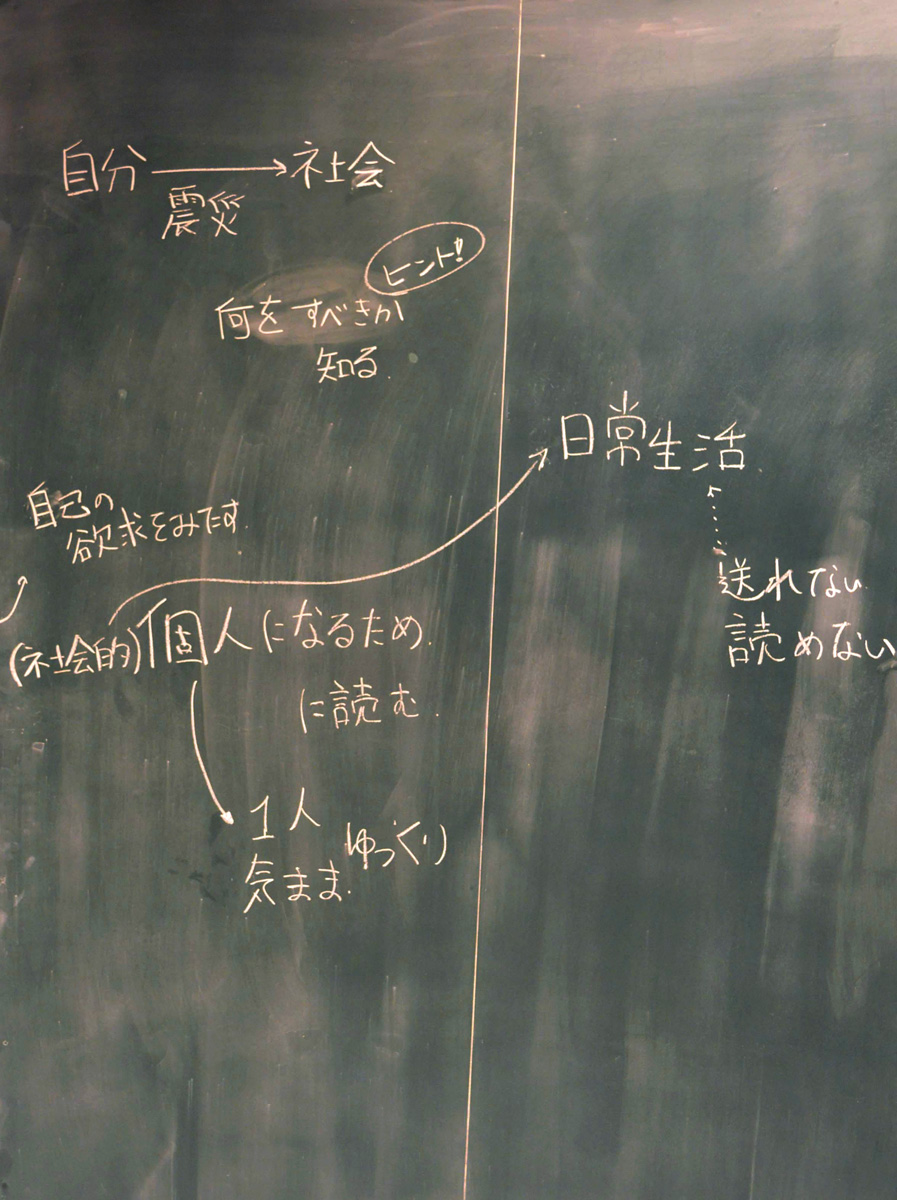 自分→社会
震災
ヒント!
何をすべきか
知る.
自己の
欲求をみたす.
(社会的)個人になるため.
に読む.
1人
気まま.
ゆっくり
日常生活.
送れない.
読めない